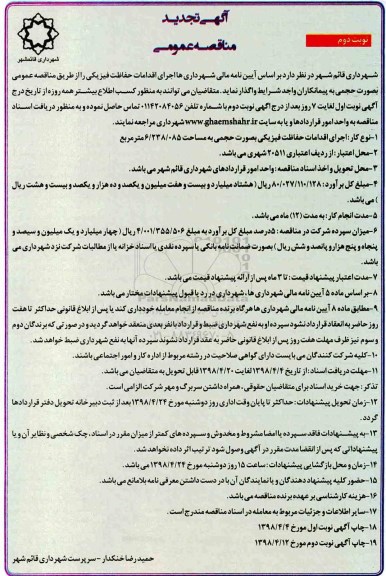 آگهی تجدید
مناقصه عمومی
نوبت دوم
شهرداری قائمشهر
شهرداری قائم شهر در نظر دارد بر اساس آیین نامه مالی شهرداری ها اجرای اقدامات حفاظت فیزیکی را از طریق مناقصه عمومی
بصورت حجمی به پیمانکاران واجد شرایط واگذار نماید. متقاضیان می توانند به منظور کسب اطلاع بیشتر همه روزه از تاریخ درج
آگهی نوبت اول لغایت ۷ روز بعد از درج آگهی نوبت دوم با شماره تلفن ۰۱۱۴۲۰۸۴۰۵۶ تماس حاصل نموده و به منظور دریافت اسناد
مناقصه به واحد امور قراردادها و یا به سایت www.ghaemshahr.ir شهرداری مراجعه نمایند.
۱-نوع کار: اجرای اقدامات حفاظت فیزیکی بصورت حجمی به مساحت ۶/۲۳۸/۰۸۵ متر مربع
۲-محل اعتبار: از ردیف اعتباری ۲۰۵۱۱ شهری می باشد.
۳-محل تحویل و اخذ اسناد مناقصه: واحد امور قراردادهای شهرداری قائم شهر می باشد.
۴-مبلغ کل برآورد: ۸۰/۰۲۷/۱۱۰/۱۲۸ ریال (هشتاد میلیارد و بیست و هفت میلیون و یکصد و ده هزار و یکصد و بیست و هشت ریال
) می باشد.
۵-مدت انجام کار: به مدت (۱۲) ماه می باشد.
۶-میزان سپرده شرکت در مناقصه: ۵ درصد مبلغ کل برآورد به مبلغ ۴/۰۰۱/۳۵۵/۵۰۶ ریال (چهار میلیارد و یک میلیون و سیصد و
پنجاه و پنج هزار و پانصد و شش ریال) بصورت ضمانت نامه بانکی یا سپرده نقدی یا اسناد خزانه یا از مطالبات شرکت نزد شهرداری می
باشد.
۷-مدت اعتبار پیشنهاد قیمت: تا ۳ ماه پس از ارائه پیشنهاد قیمت می باشد.
۸-بر اساس ماده ۵ آیین نامه مالی شهرداری ها، شهرداری در رد یا قبول پیشنهادات مختار می باشد.
۹-مطابق ماده ۸ آیین نامه مالی شهرداری ها هرگاه برنده مناقصه از انجام معامله خودداری کند یا پس از ابلاغ قانونی حداکثر تا هفت
روز حاضر به انعقاد قرارداد نشود سپرده او به نفع شهرداری ضبط و قرارداد با نفر بعدی منعقد خواهد گردید و در صورتی که برندگان دوم
و سوم نیز ظرف مهلت هفت روز پس از ابلاغ قانونی حاضر به عقد قرارداد نشوند سپرده آنها به نفع شهرداری ضبط خواهد شد.
۱۰-کلیه شرکت کنندگان می بایست دارای گواهی صلاحیت در رشته مربوط از اداره کار و امور اجتماعی باشند.
۱۱-مهلت دریافت اسناد: از تاریخ ۱۳۹۸/۴/۴ لغایت ۱۳۹۸/۴/۲۰ قابل تحویل به متقاضیان می باشد.
تذکر: جهت خرید اسناد برای متقاضیان حقوقی، همراه داشتن سربرگ و مهر شرکت الزامی است.
۱۲-زمان تحویل پیشنهادات: حداکثر تا پایان وقت اداری روز دوشنبه مورخ ۱۳۹۸/۴/۲۴ بعد از ثبت دبیرخانه تحویل دفتر قراردادها
گردد.
۱۳-به پیشنهادات فاقد سپرده یا امضا مشروط و مخدوش و سپرده های کمتر از میزان مقرر در اسناد، چک شخصی و نظایر آن و یا
پیشنهاداتی که پس از انقضا مدت مقرر در آگهی وصول شود ترتیب اثر داده نخواهد شد.
۱۴-زمان و محل بازگشایی پیشنهادات: ساعت ۱۵ روز دوشنبه مورخ ۱۳۹۸/۴/۲۴ می باشد.
۱۵-حضور کلیه پیشنهاد دهندگان و یا نمایندگان آن با در دست داشتن معرفی نامه بلامانع می باشد.
۱۶-هزینه کارشناسی بر عهده برنده مناقصه می باشد.
۱۷-سایر اطلاعات و جزئیات مربوط به معامله در اسناد مناقصه مندرج است.
۱۸-چاپ آگهی نوبت اول مورخ ۱۳۹۸/۴/۴
۱۹-چاپ آگهی نوبت دوم مورخ ۱۳۹۸/۴/۱۲
حمیدرضا خنکدار - سرپرست شهرداری قائم شهر